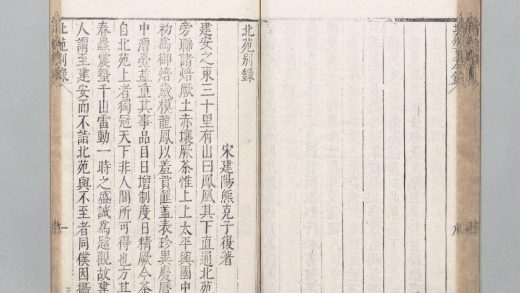 北苑別錄
宋建陽熊克子復著
建安之東三十里有山曰鳳凰其下直通北苑
旁聯諸焙厥土赤壤厥茶惟上上太平興國中
初為御焙歲模龍鳳以羞貢篚蓋表珍異慶曆
中漕臺益重其事品目日增制度日精厥今茶
自北苑上者獨冠天下非人間所可得也方其
春蟲震蟄千山雷動一時之盛誠為偉觀故建
人謂至建安而不詣北苑與不至者同僕因攝
北苑別錄
一